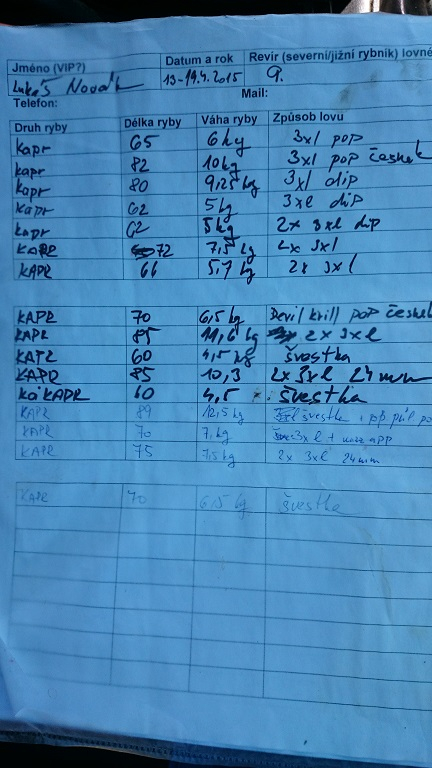 Jméno (VIP?) Datum a rok Revír (severní/jižní rybník) lovné
Lukáš Novák 13-19.4.2015 9.
Telefon: Mail:
Druh ryby Délka ryby Váha ryby Způsob lovu
kapr 65 6 kg 3xl pop
kapr 82 10kg 3xl pop česnek
kapr 80 9,25 kg 3xl dip
kapr 62 5 kg 3xl dip
kapr 62 5kg 2x 3xl dip
KAPR 72 7,5 kg 2x 3xl
KAPR 66 5,7 kg 2x 3xl
KAPR 70 6,5 kg Devil krill pop česnek
KAPR 85 11,6 kg 2x 3xl
KAPR 60 4,5 kg švestka
KAPR 85 10,3 2x 3xl 24mm
KOI KAPR 60 4,5 švestka
KAPR 89 12,5 kg švestka + půl
KAPR 70 7, kg 3xl +
KAPR 75 7,5 kg 2x 3xl 24mm
KAPR 70 6,5 kg švestka